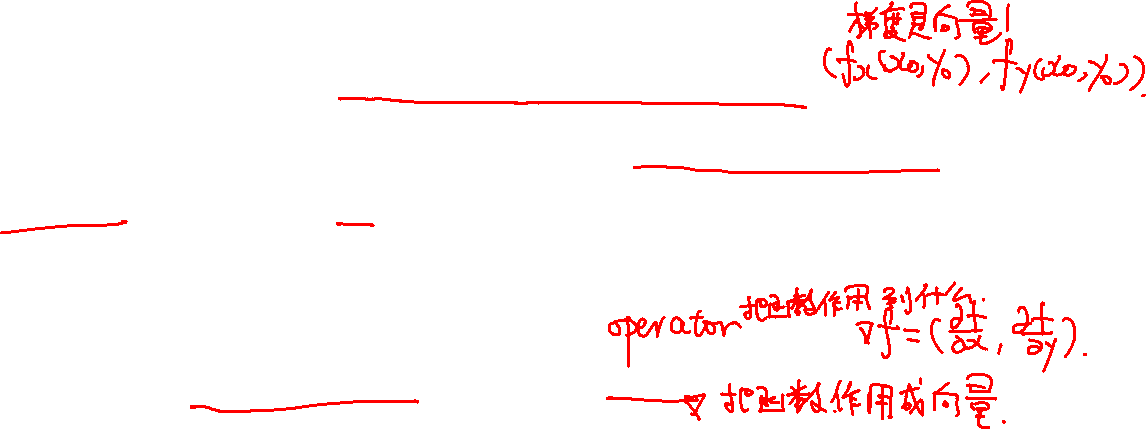 梯度是向量!
(fx(x0,y0), fy(x0,y0)).
operator 把函数作用到什么.
∇f = (∂f/∂x, ∂f/∂y).
∇ 把函数作用成向量.